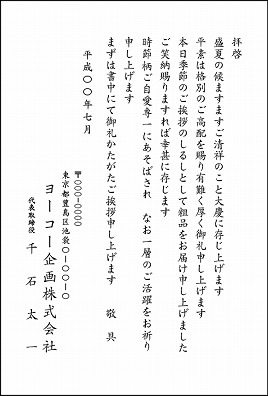 拝啓
盛夏の候ますますご清祥のこと大慶に存じ上げます
平素は格別のご高配を賜り有難く厚く御礼申し上げます
本日季節のご挨拶のしるしとして粗品をお届け申し上げました
ご笑納賜りますれば幸甚に存じます
時節柄ご自愛専一にあそばされ なお一層のご活躍をお祈り
申し上げます
まずは書中にて御礼かたがたご挨拶申し上げます 敬具
平成〇〇年七月
〒〇〇〇-〇〇〇〇
東京都豊島区池袋〇-〇〇-〇
ヨーコー企画株式会社
代表取締役 千石太一